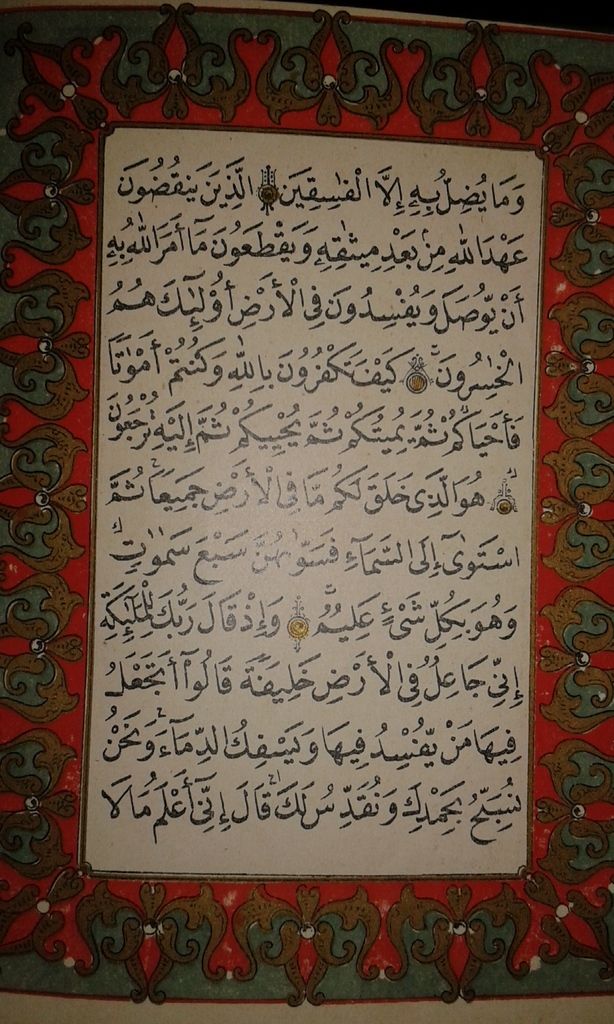 وَمَا يُضِلُّ بِهٖٓ اِلَّا الْفٰسِقٖينَ الَّذٖينَ يَنْقُضُونَ
عَهْدَ اللّٰهِ مِنْ بَعْدِ مٖيثٰقِهٖ وَيَقْطَعُونَ مَٓا اَمَرَ اللّٰهُ بِهٖٓ
اَنْ يُّوصَلَ وَيُفْسِدُونَ فِى الْاَرْضِ اُولٰٓئِكَ هُمُ
الْخٰسِرُونَ كَيْفَ تَكْفُرُونَ بِاللّٰهِ وَكُنْتُمْ اَمْوٰتًا
فَاَحْيَاكُمْ ثُمَّ يُمٖيتُكُمْ ثُمَّ يُحْيٖيكُمْ ثُمَّ اِلَيْهِ تُرْجَعُونَ
هُوَ الَّذٖى خَلَقَ لَكُمْ مَا فِى الْاَرْضِ جَمٖيعًا ثُمَّ
اسْتَوٰٓى اِلَى السَّمَٓاءِ فَسَوّٰىهُنَّ سَبْعَ سَمٰوٰتٍ
وَهُوَ بِكُلِّ شَىْءٍ عَلٖيمٌ وَاِذْ قَالَ رَبُّكَ لِلْمَلٰٓئِكَةِ
اِنّٖى جَاعِلٌ فِى الْاَرْضِ خَلٖيفَةً قَالُٓوا اَتَجْعَلُ
فٖيهَا مَنْ يُّفْسِدُ فٖيهَا وَيَسْفِكُ الدِّمَٓاءَ وَنَحْنُ
نُسَبِّحُ بِحَمْدِكَ وَنُقَدِّسُ لَكَ قَالَ اِنّٖٓى اَعْلَمُ مَا لَا